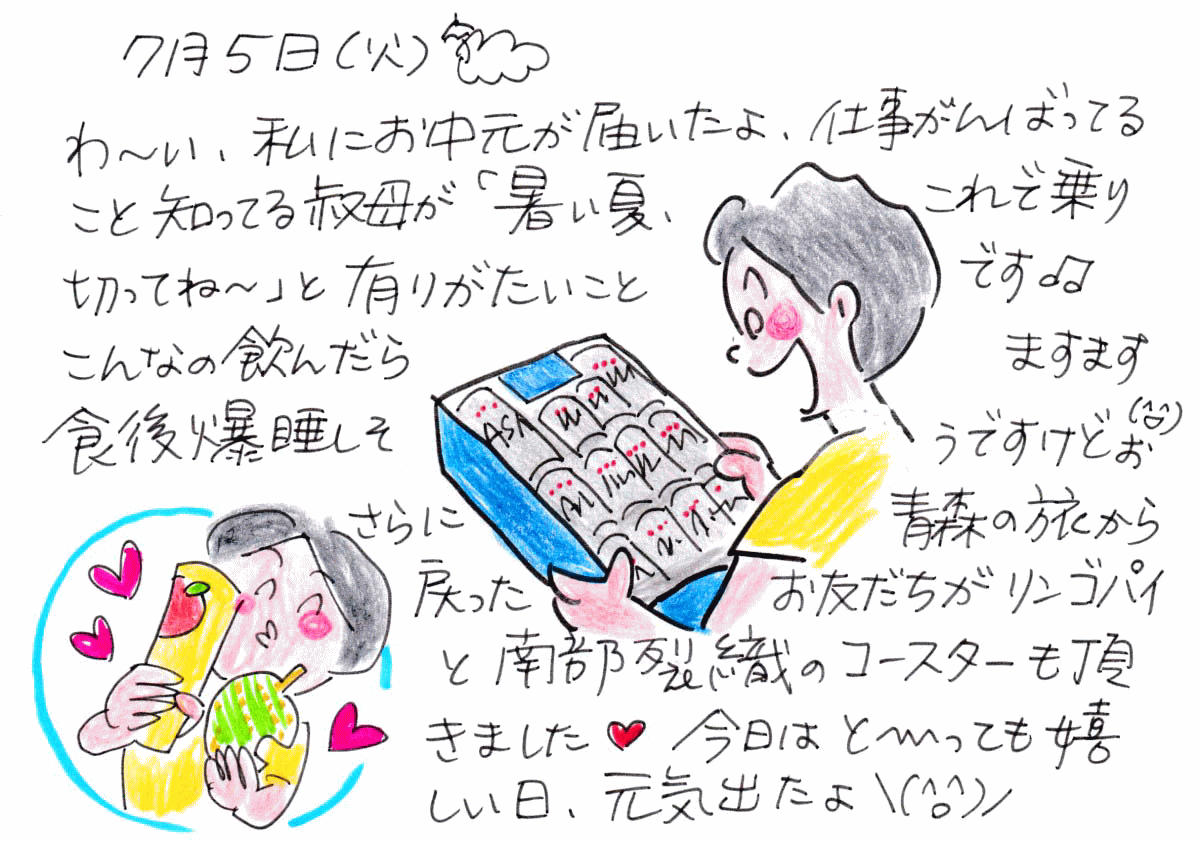 7月5日(火)
わ〜い、私にお中元が届いたよ、仕事がんばってる
こと知ってる叔母が「暑い夏、これで乗り
切ってね〜」と有りがたいことです♫
こんなの飲んだらますます
食後爆睡しそうですけど(^^)お
さらに青森の旅から
戻ったお友だちがリンゴパイ
と南部裂織のコースターも頂
きました♥今日はと〜〜っても嬉
しい日、元気出たよ\(^o^)/
ASA